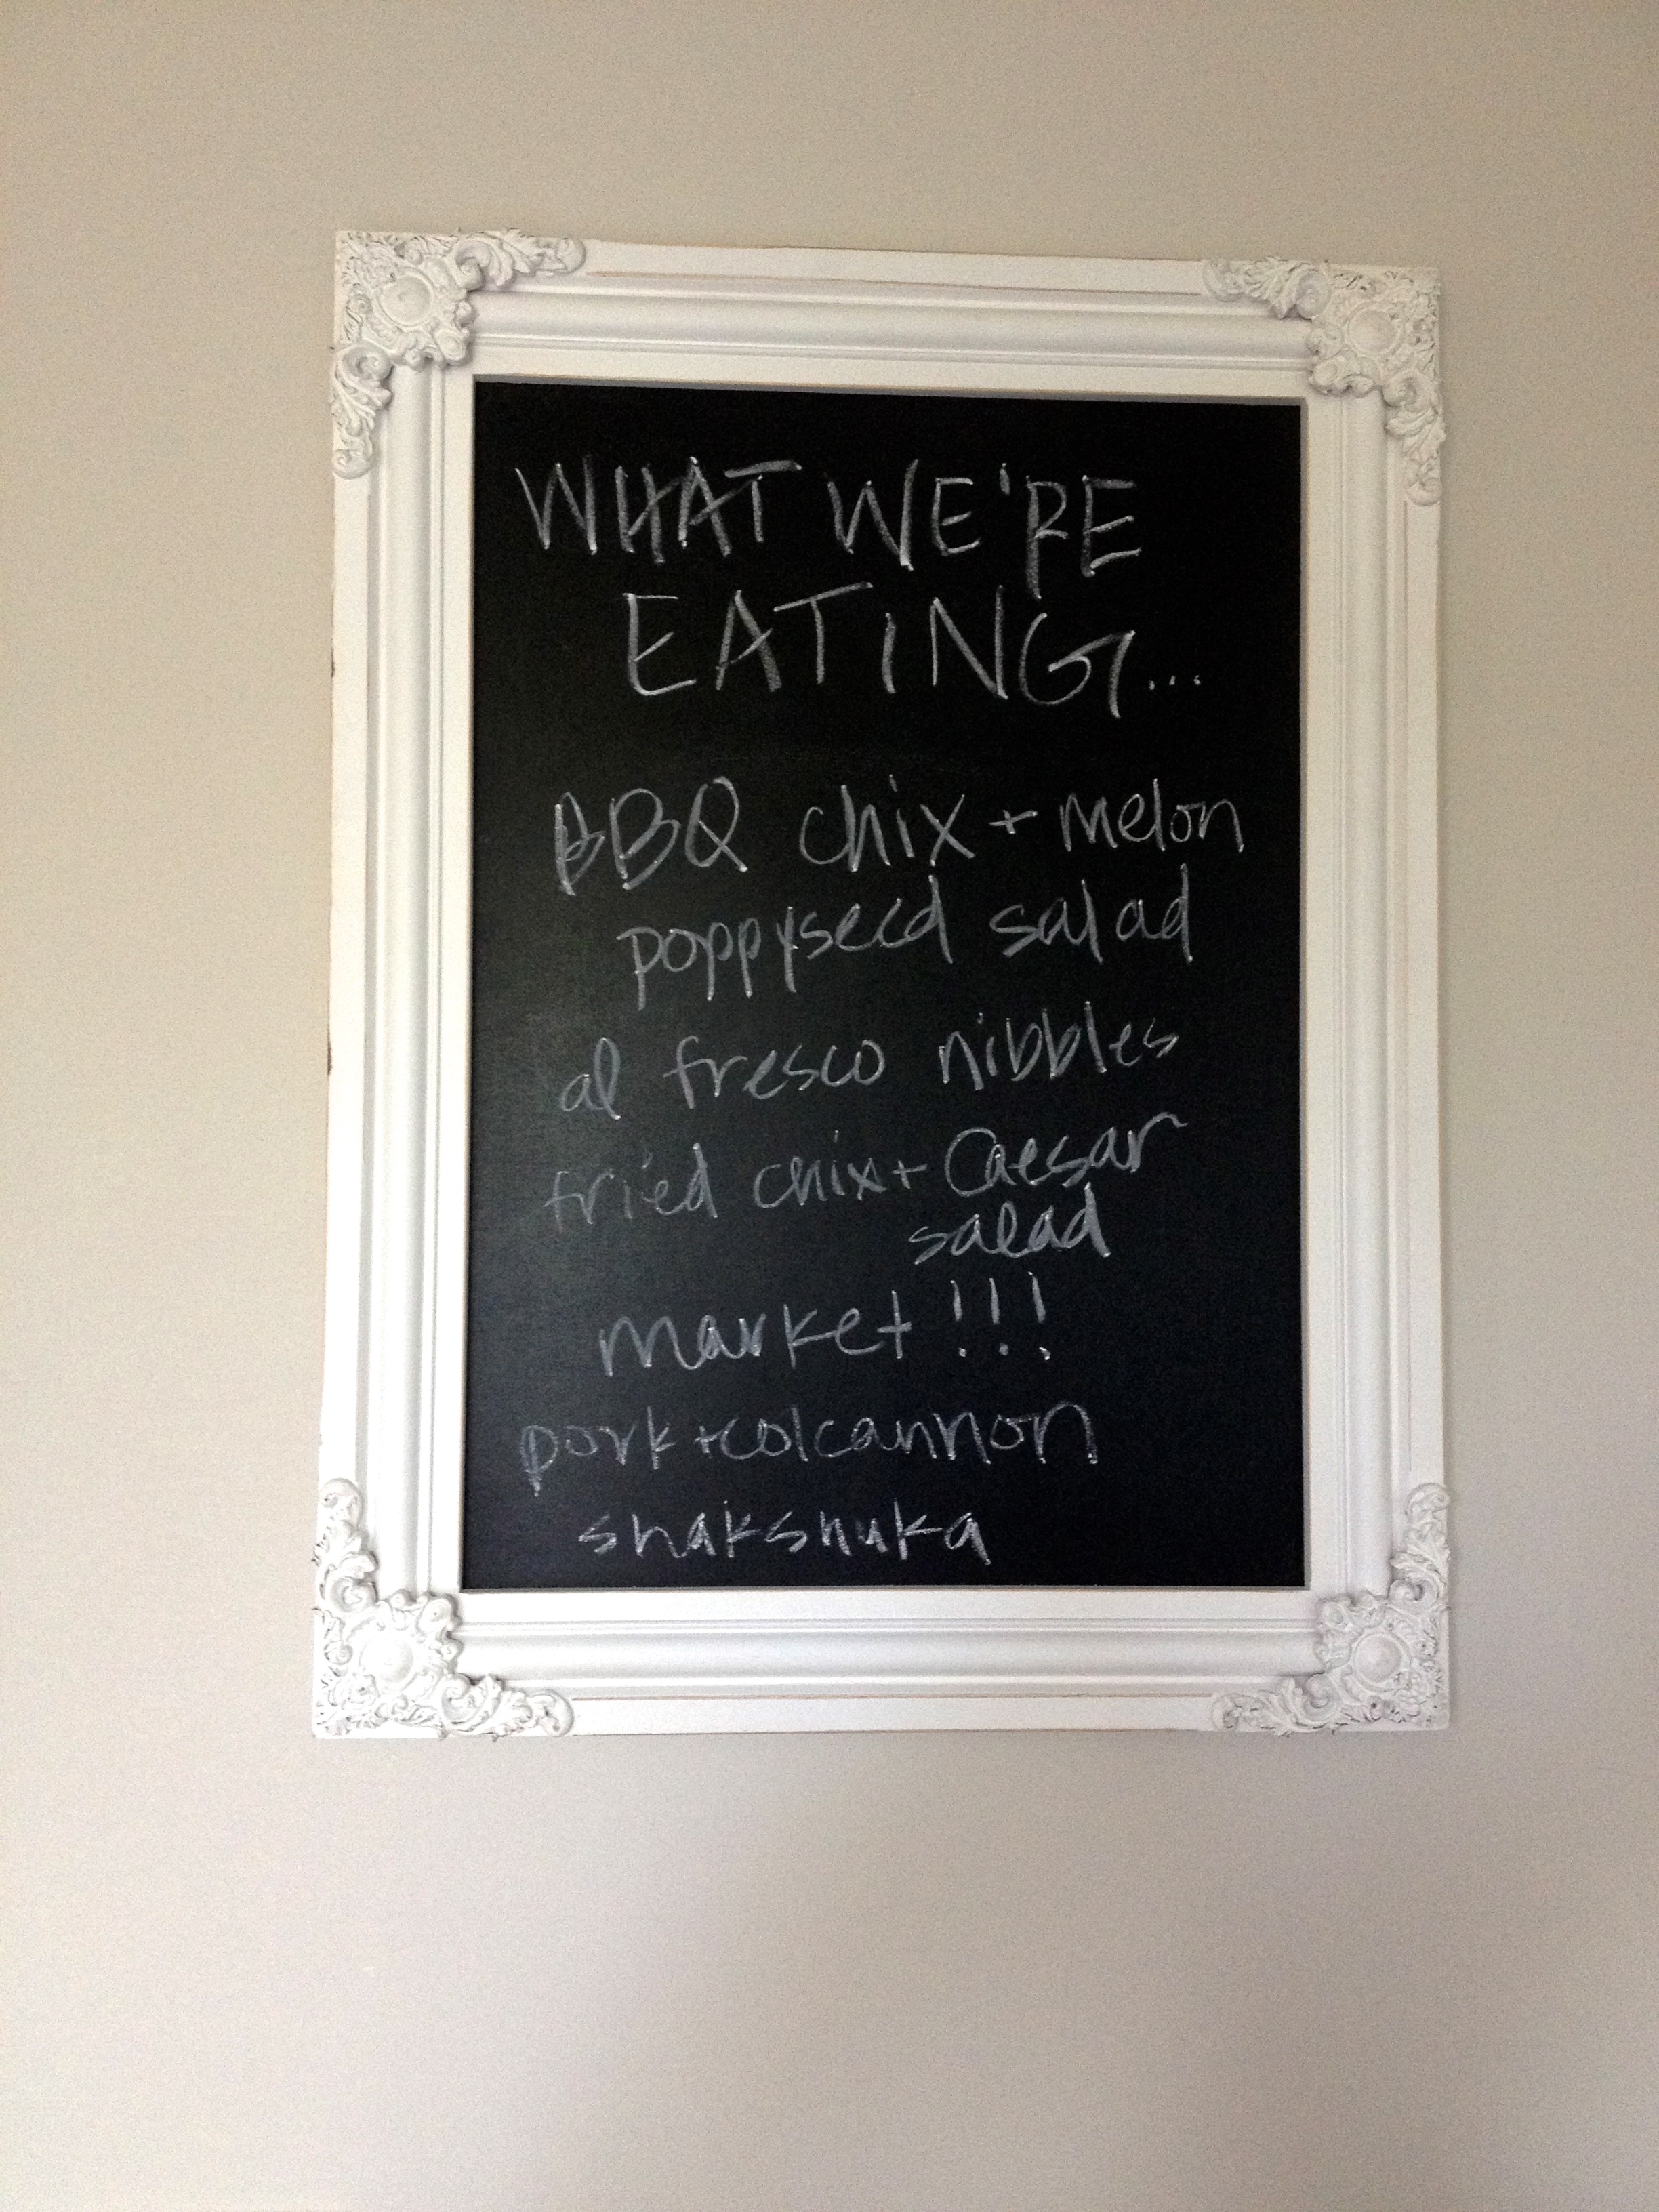 WHAT WE'RE
EATING...
BBQ chix + melon
poppyseed salad
al fresco nibbles
fried chix + Caesar
salad
market!!!
pork + colcannon
shakshuka